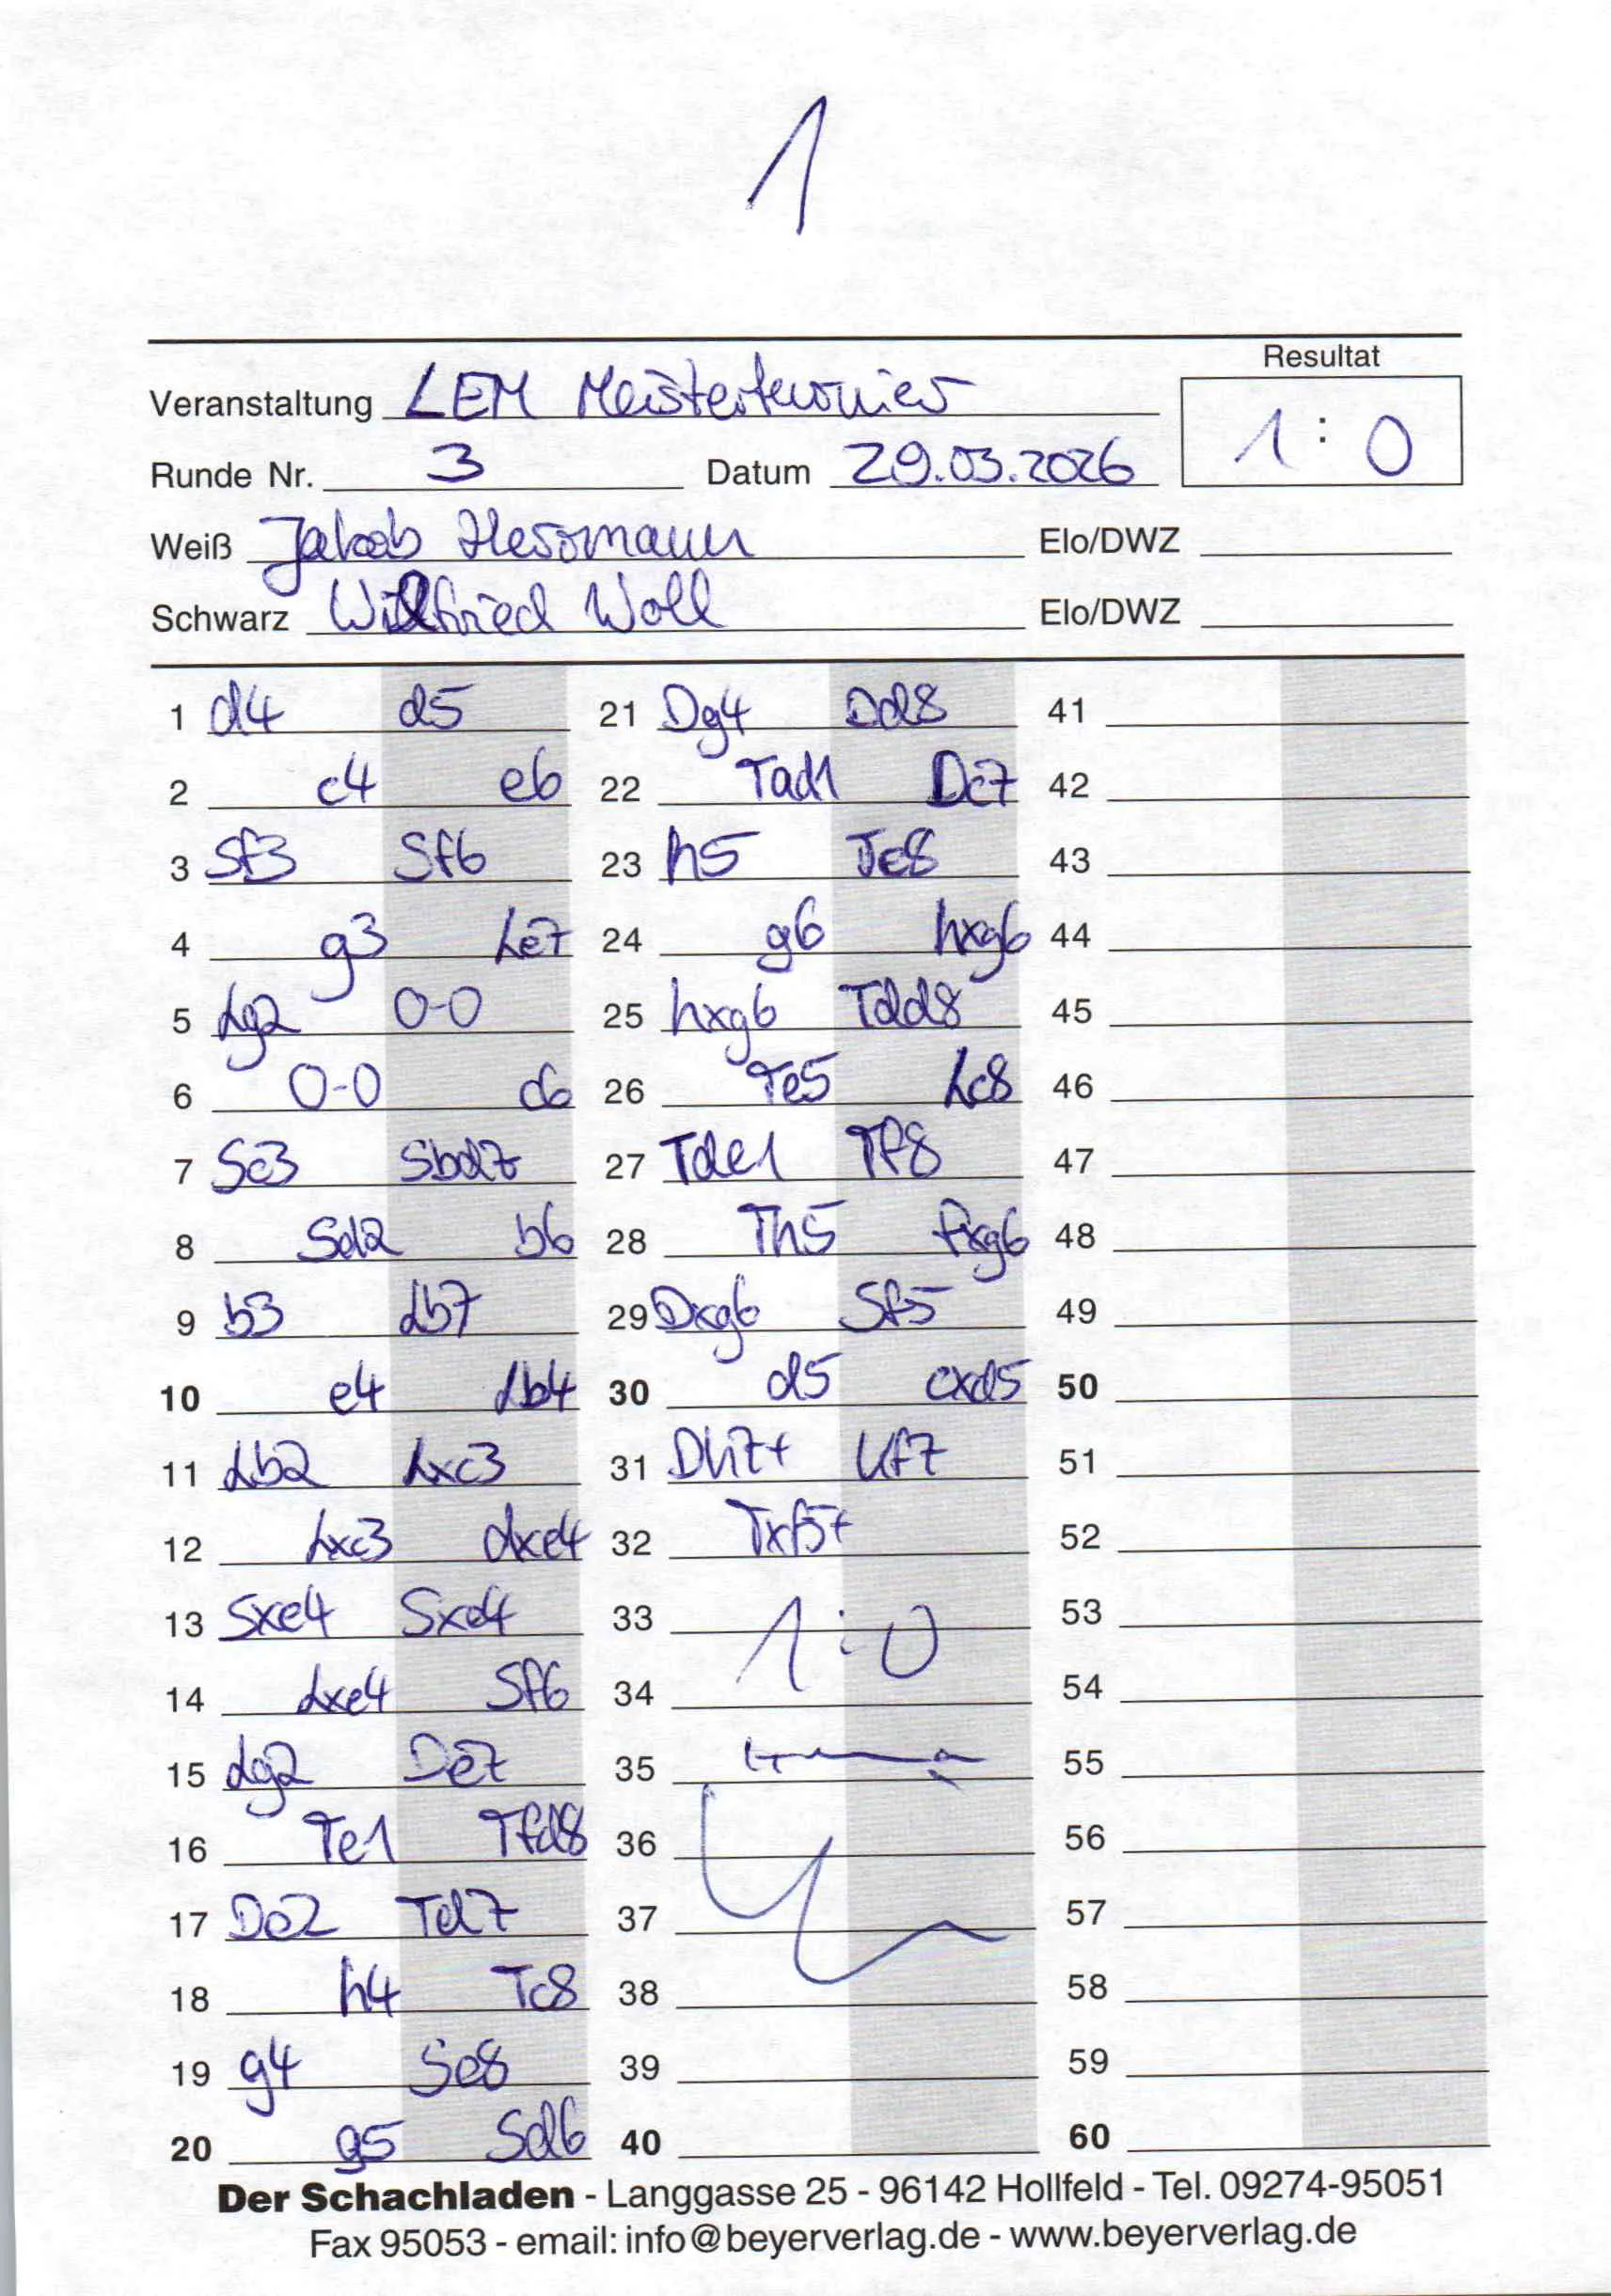 1
Resultat
Veranstaltung LEM Meisterturnier
1 : 0
Runde Nr. 3 Datum 29.03.2026
Weiß Jakob Herrmann Elo/DWZ
Schwarz Willfried Woll Elo/DWZ
1 d4 d5 21 Dg4 Dd8 41
2 c4 e6 22 Tad1 De7 42
3 Sf3 Sf6 23 h5 Te8 43
4 g3 Le7 24 g6 hxg6 44
5 Lg2 0-0 25 hxg6 Tdd8 45
6 0-0 c6 26 Te5 Lc8 46
7 Sc3 Sbd7 27 Tde1 Tf8 47
8 Sd2 b6 28 Th5 fxg6 48
9 b3 Lb7 29 Dxg6 Sf5 49
10 e4 Lb4 30 d5 cxd5 50
11 Lb2 Lxc3 31 Dh7+ Kf7 51
12 Lxc3 dxe4 32 Txf5+ 52
13 Sxe4 Sxe4 33 1:0 53
14 Lxe4 Sf6 34 54
15 Lg2 De7 35 55
16 Te1 Tfd8 36 56
17 De2 Td7 37 57
18 h4 Tc8 38 58
19 g4 Se8 39 59
20 g5 Sd6 40 60
Der Schachladen - Langgasse 25 - 96142 Hollfeld - Tel. 09274-95051
Fax 95053 - email: info@beyerverlag.de - www.beyerverlag.de